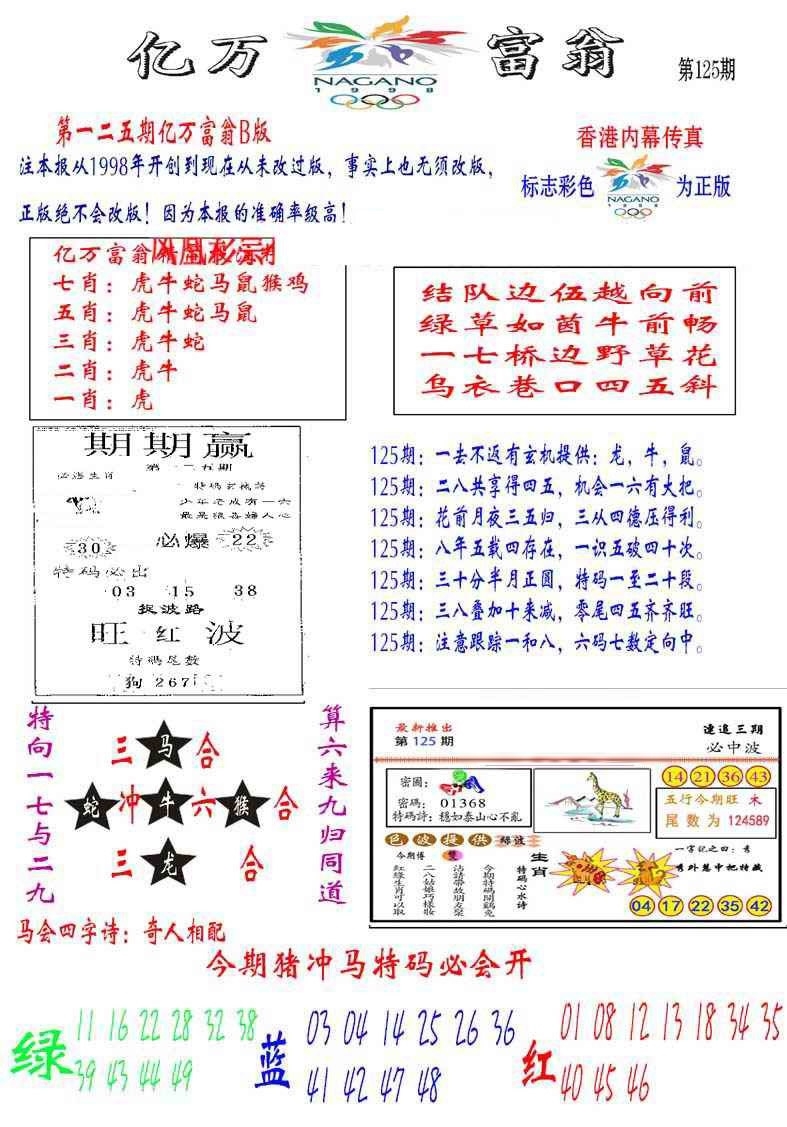 亿万富翁
NAGANO
1998
第125期
第一二五期亿万富翁B版
香港内幕传真
注本报从1998年开创到现在从未改过版，事实上也无须改版，
标志彩色
NAGANO
1998
为正版
正版绝不会改版！因为本报的准确率级高！
亿万富翁
七肖：虎牛蛇马鼠猴鸡
五肖：虎牛蛇马鼠
三肖：虎牛蛇
二肖：虎牛
一肖：虎
结队边伍越向前
绿草如茵牛前畅
一七桥边野草花
乌衣巷口四五斜
期期赢
第一二五期
必爆
30
22
特码必出
03 15 38
捉波路
旺红波
特码尾数
狗267
125期：一去不返有玄机提供：龙，牛，鼠。
125期：二八共享得四五，机会一六有大把。
125期：花前月夜三五归，三从四德压得利。
125期：八年五载四存在，一识五破四十次。
125期：三十分半月正圆，特码一至二十段。
125期：三八叠加十来减，零尾四五齐齐旺。
125期：注意跟踪一和八，六码七数定向中。
特向一七与二九
三马合
蛇冲牛六猴合
三龙合
算六来九归同道
最新推出
第125期
连追三期
必中波
密圖：
密碼：01368
特码詩：穩如泰山心不亂
14 21 36 43
五行今期旺 木
尾数为 124589
色波提供 綠波
今期博 雙
生肖
特码心水诗
一字記之曰：秀
秀外慧中把特藏
04 17 22 35 42
马会四字诗：奇人相配
今期猪冲马特码必会开
绿
11 16 22 28 32 38
39 43 44 49
蓝
03 04 14 25 26 36
41 42 47 48
红
01 08 12 13 18 34 35
40 45 46